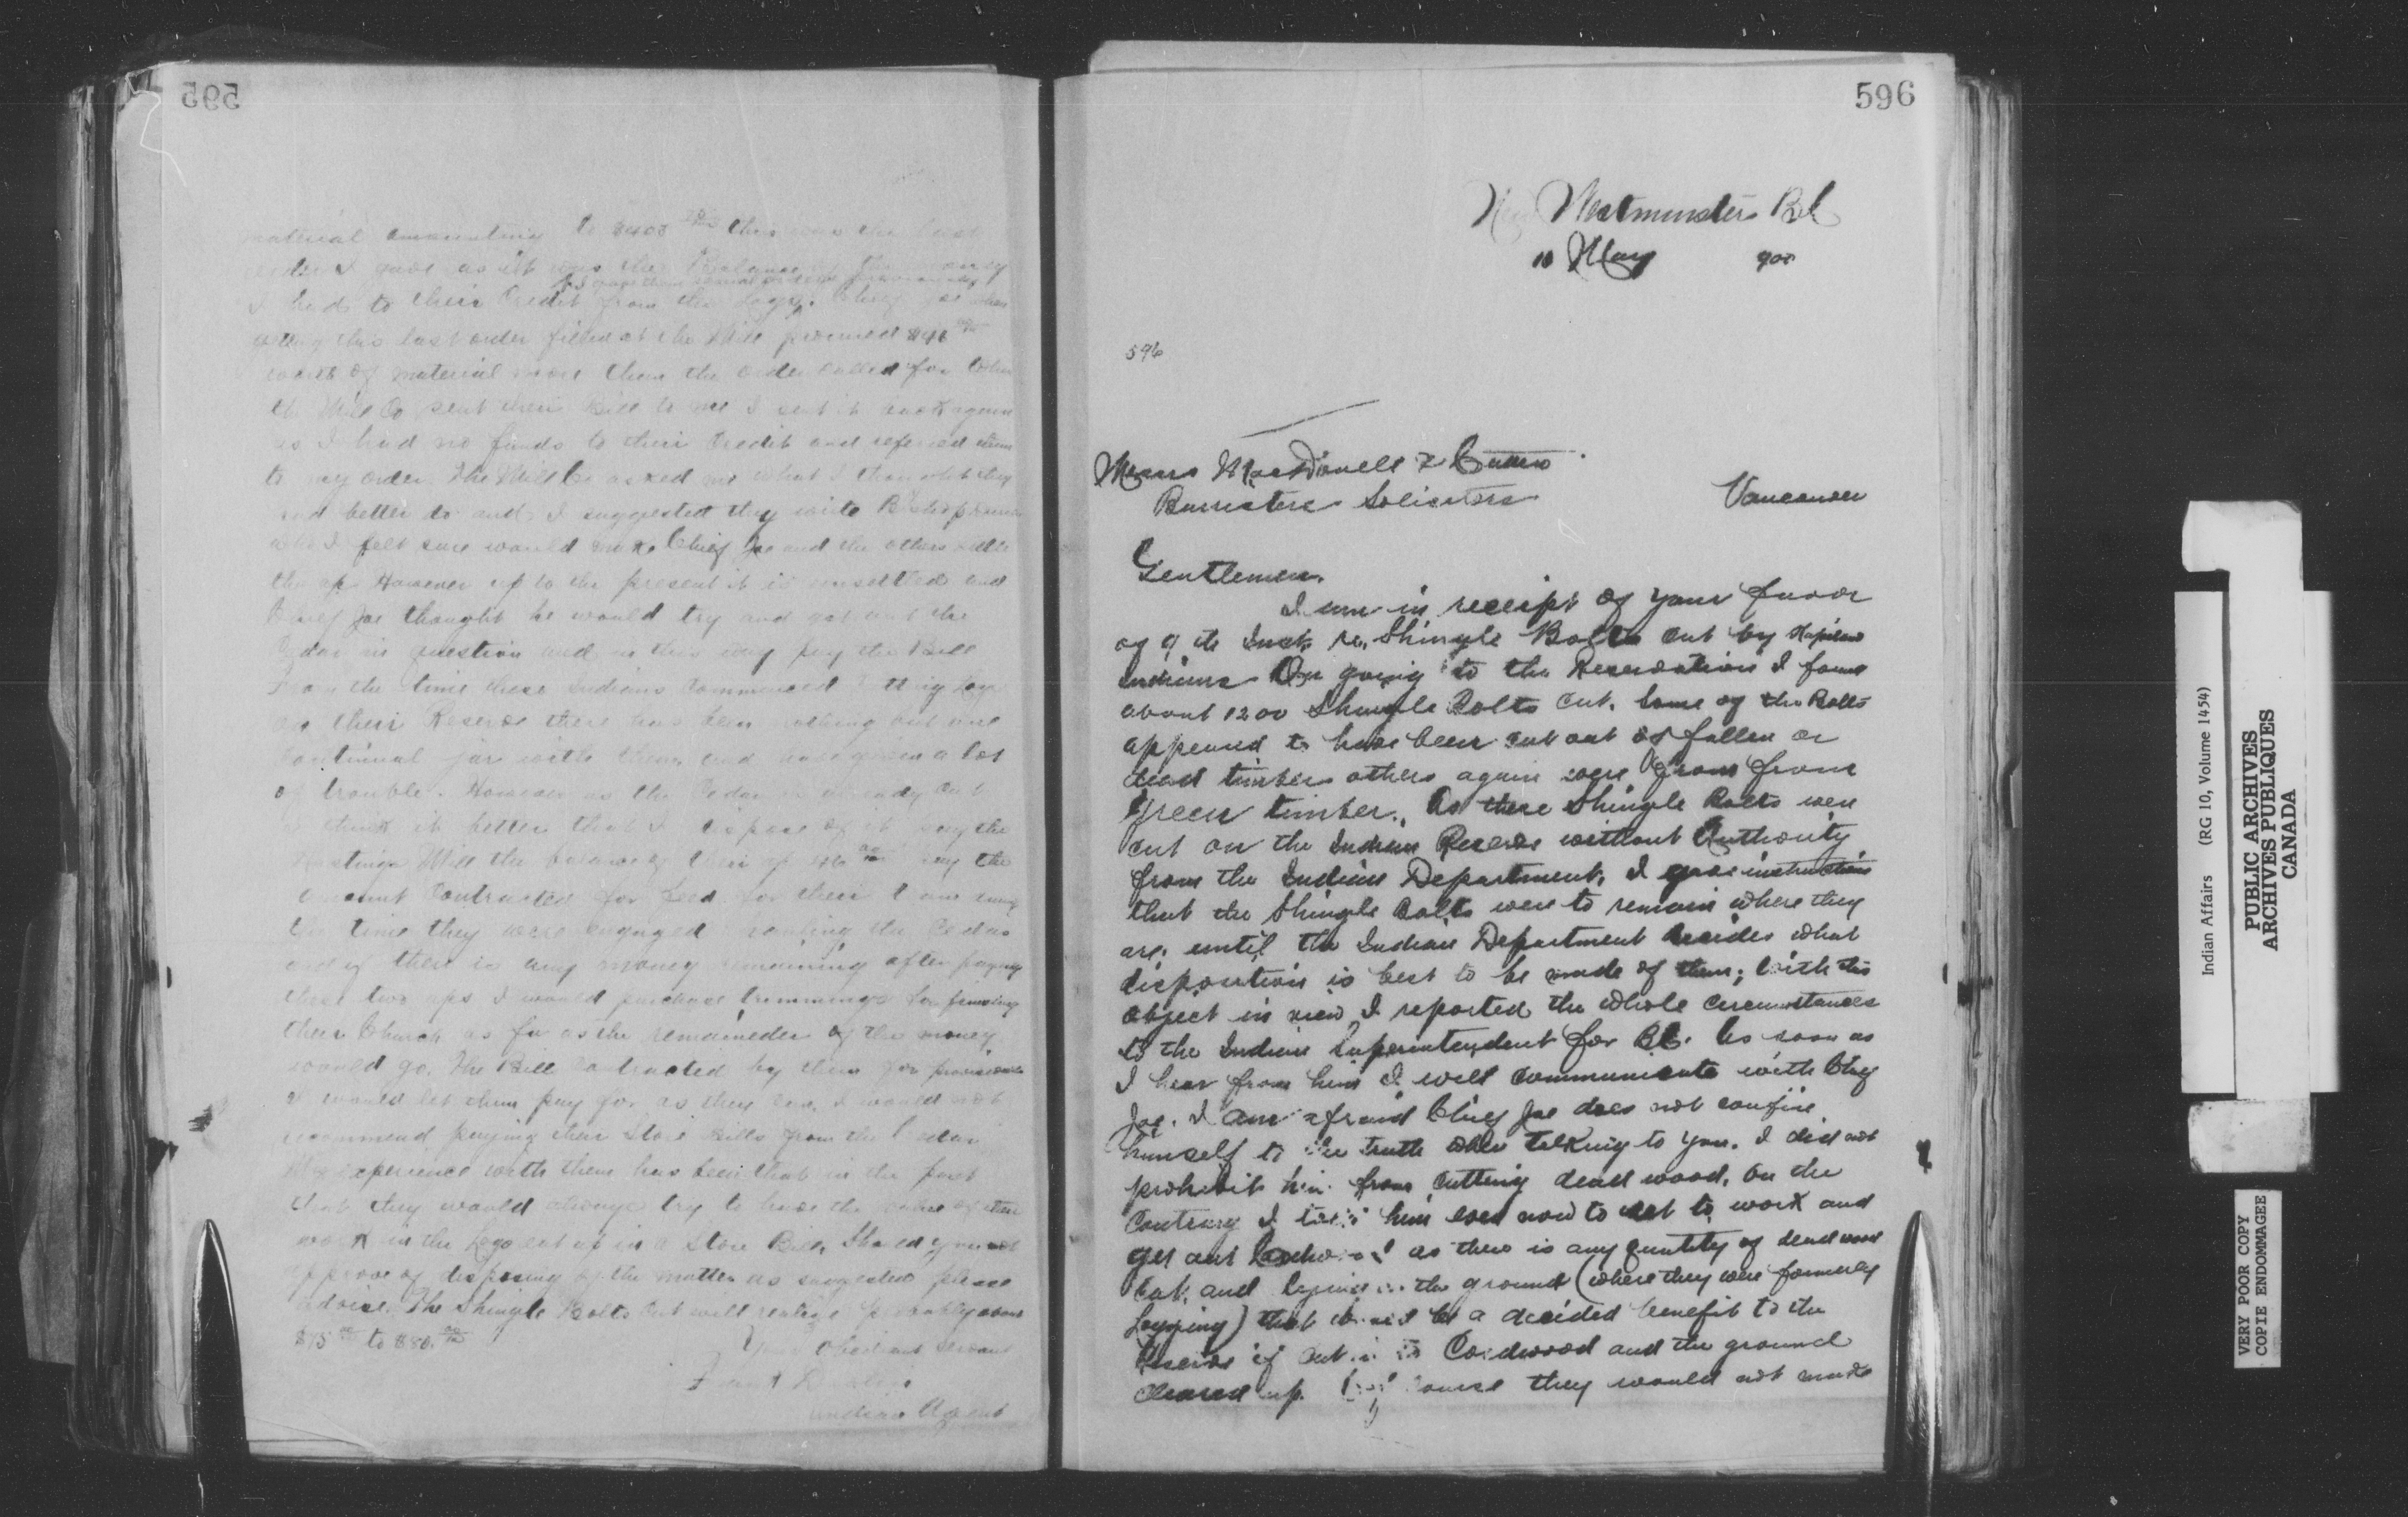 595
material amounting to $400 this was the last
order I gave as it was the Balance of the money
I had to their Credit from the Logs. Chief Joe when
getting this last order filled at the Mill procured $46
worth of material more than the order called for When
the Mill Co sent their Bill to me I sent it back again
as I had no funds to their Credit and referred them
to my order The Mill Co asked me what I thought they
had better do and I suggested they write Bishop
who I felt sure would make Chief Joe and the others settle
the a/c However up to the present it is unsettled and
Chief Joe thought he would try and get out the
Cedar in question and in this way pay the Bill
From the time these Indians Commenced cutting Logs
on their Reserve there has been nothing but one
Continual jar with them and have given a lot
of trouble. However as the Cedar is already Cut
I think it better that I dispose of it pay the
Hastings Mill the balance of their a/c 46 pay the
amount Contracted for feed for their
the time they were engaged hauling the Cedar
and if there is any money remaining after paying
these two a/cs I would purchase trimmings for finishing
their Church as far as the remaineder of the money
would go. The Bill Contracted by them for provisions
I would let them pay for as they can, I would not
recommend paying their Store Bills from the Cedar
My experience with them has been that in the past
that they would always try to have the value of their
work in the Logs eat up in a Store Bill, Should you not
approve of disposing of the matter as suggested please
advise. The Shingle Bolts Cut will realize probably about
$75 to $80.
Your Obedient Servant
Frank Devlin
Indian Agent
596
New Westminster BC
10 May 900
596
Messrs MacDonell &
Barristers Solicitors Vancouver
Gentlemen.
I am in receipt of your favor
of 9th Inst. re. Shingle Bolts Cut by Kapilano
Indians On going to the Reservation I found
about 1200 Shingle Bolts Cut. Some of the Bolts
appeared to have been cut out of fallen or
dead timber others again were from from
green timber. As these Shingle Bolts were
cut on the Indian Reserve without Authority
from the Indian Department, I gave instructions
that the Shingle Bolts were to remain where they
are, until the Indian Department decides what
disposition is best to be made of them; With this
object in view I reported the whole circumstances
to the Indian Superintendent for BC. As soon as
I hear from him I will communicate with Chief
Joe. I am afraid Chief Joe does not confine
himself to the truth when talking to you. I did not
prohibit him from Cutting dead wood, on the
Contrary I told him even now to set to work and
get out Cordwood as there is any quantity of dead wood
Cut, and lying on the ground (where they were formerly
Logging) that would be a decided benefit to the
Reserve if Cut in to Cordwood and the ground
cleared up. Of course they would not make
Indian Affairs (RG 10, Volume 1454)
PUBLIC ARCHIVES
ARCHIVES PUBLIQUES
CANADA
VERY POOR COPY
COPIE ENDOMMAGEE